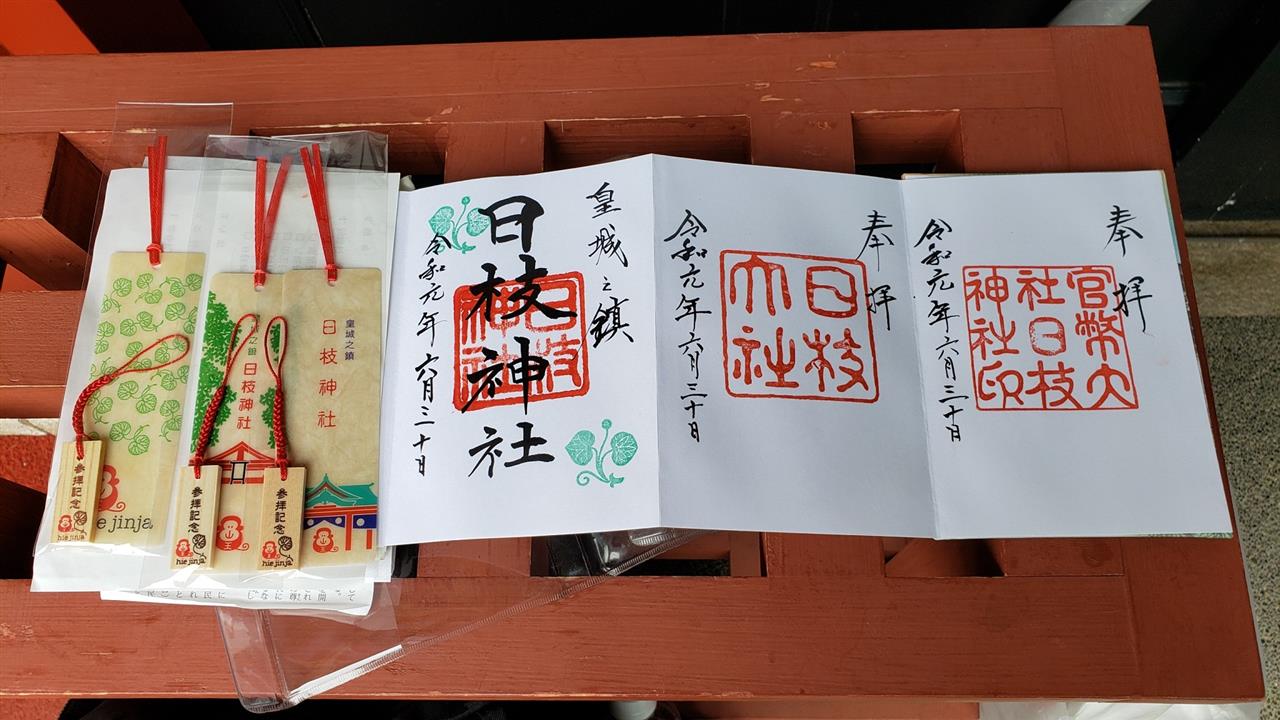 皇城之鎮
日枝神社
日枝神社
令和元年六月三十日
奉拝
日枝大社
令和元年六月三十日
奉拝
官幣大社日枝神社印
令和元年六月三十日
皇城之鎮
日枝神社
之鎮
日枝神社
参拝記念
hie jinja
参拝記念
hie jinja
参拝記念
hie jinja
e jinja